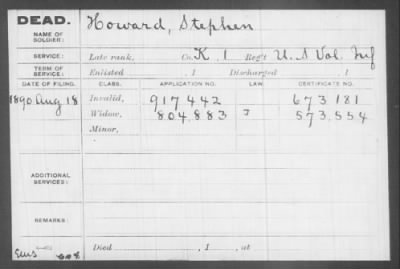 DEAD.
NAME OF SOLDIER:
Howard, Stephen
SERVICE:
Late rank, Co. K, 1 Reg't U. S Vol. Inf
TERM OF SERVICE:
Enlisted , 1 Discharged , 1
DATE OF FILING. CLASS. APPLICATION NO. LAW CERTIFICATE NO.
1890 Aug 18 Invalid, 917442 673181
Widow, 804.883 573,554
Minor,
ADDITIONAL SERVICES:
REMARKS:
Died , 1 , at